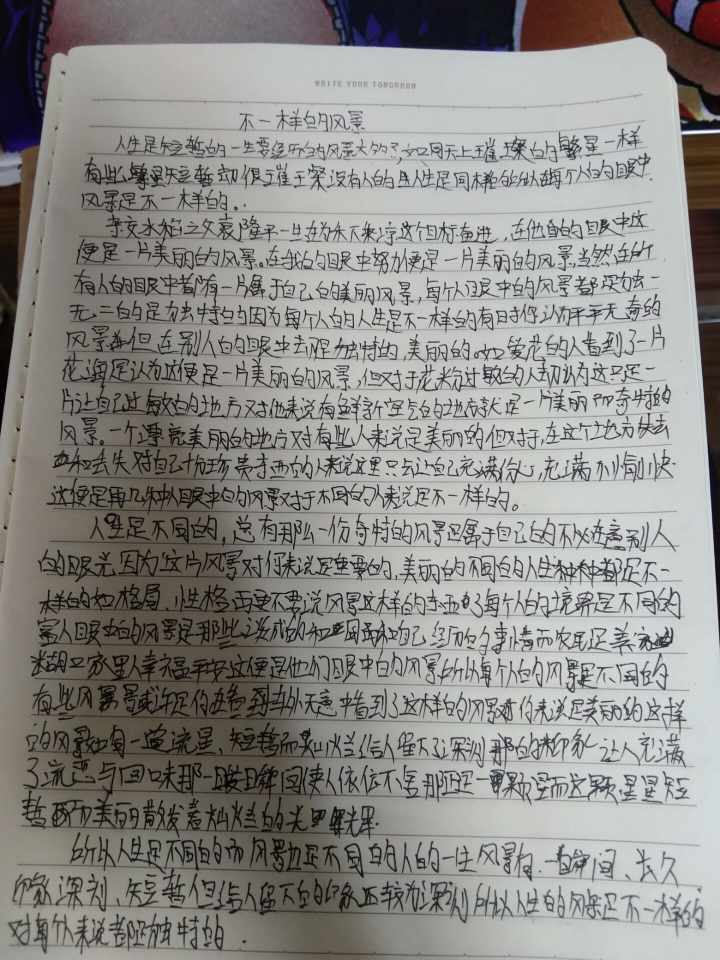 WRITE YOUR TOMORROW
不一样的风景
人生是短暂的一生要经历的风景太多了,如同天上璀璨的繁星一样
有些繁星短暂却很璀璨没有人的人生是同样的所以在每个人的眼中
风景是不一样的。
杂交水稻之父袁隆平一生在为禾下乘凉这个目标奋进,在他的眼中这
便是一片美丽的风景。在我的眼中努力便是一片美丽的风景,当然在所
有人的眼中都有一片属于自己的美丽风景,每个人眼中的风景都是独一
无二的是独特的因为每个人的人生是不一样的有时你认为平平无奇的
风景但在别人的眼中去是独特的,美丽的。如爱花的人看到了一片
花海是认为这便是一片美丽的风景,但对于花粉过敏的人却认为这只是一
片让自己过敏的地方对他来说有鲜新空气的地方就是一片美丽而奇特的
风景。一个漂亮美丽的地方对有些人来说是美丽的但对于,在这个地方失去
和丢失对自己十分珍贵东西的人来说这里只会让自己充满伤心,充满不愉快
这便是两种人眼中的风景对于不同的人来说是不一样的。
人生是不同的,总有那么一份奇特的风景是属于自己的不必在意别人
的眼光因为这片风景对你来说是重要的,美丽的不同的人生种种都是不一
样的如格局、性格再更不要说风景这样的东西了每个人的境界是不同的
富人眼中的风景是那些达成的和自己经历的事情而农民是养家
糊口家里人幸福平安这便是他们眼中的风景所以每个人的风景是不同的
有些风景或许是你在意外无意中看到了这样的风景对你来说是美丽的这样
的风景如同一道流星、短暂而灿烂给人留下了深刻的印象让人充满
了流恋与回味那一瞬间使人依依不舍那还是一颗星而这颗星星短
暂而美丽散发着灿烂的光辉
所以人生是不同的而风景也是不同的人的一生风景有一瞬间、长久
印象深刻、短暂但给人留下的印象还较为深刻所以人生的风景是不一样的
对每个人来说都是独特的.